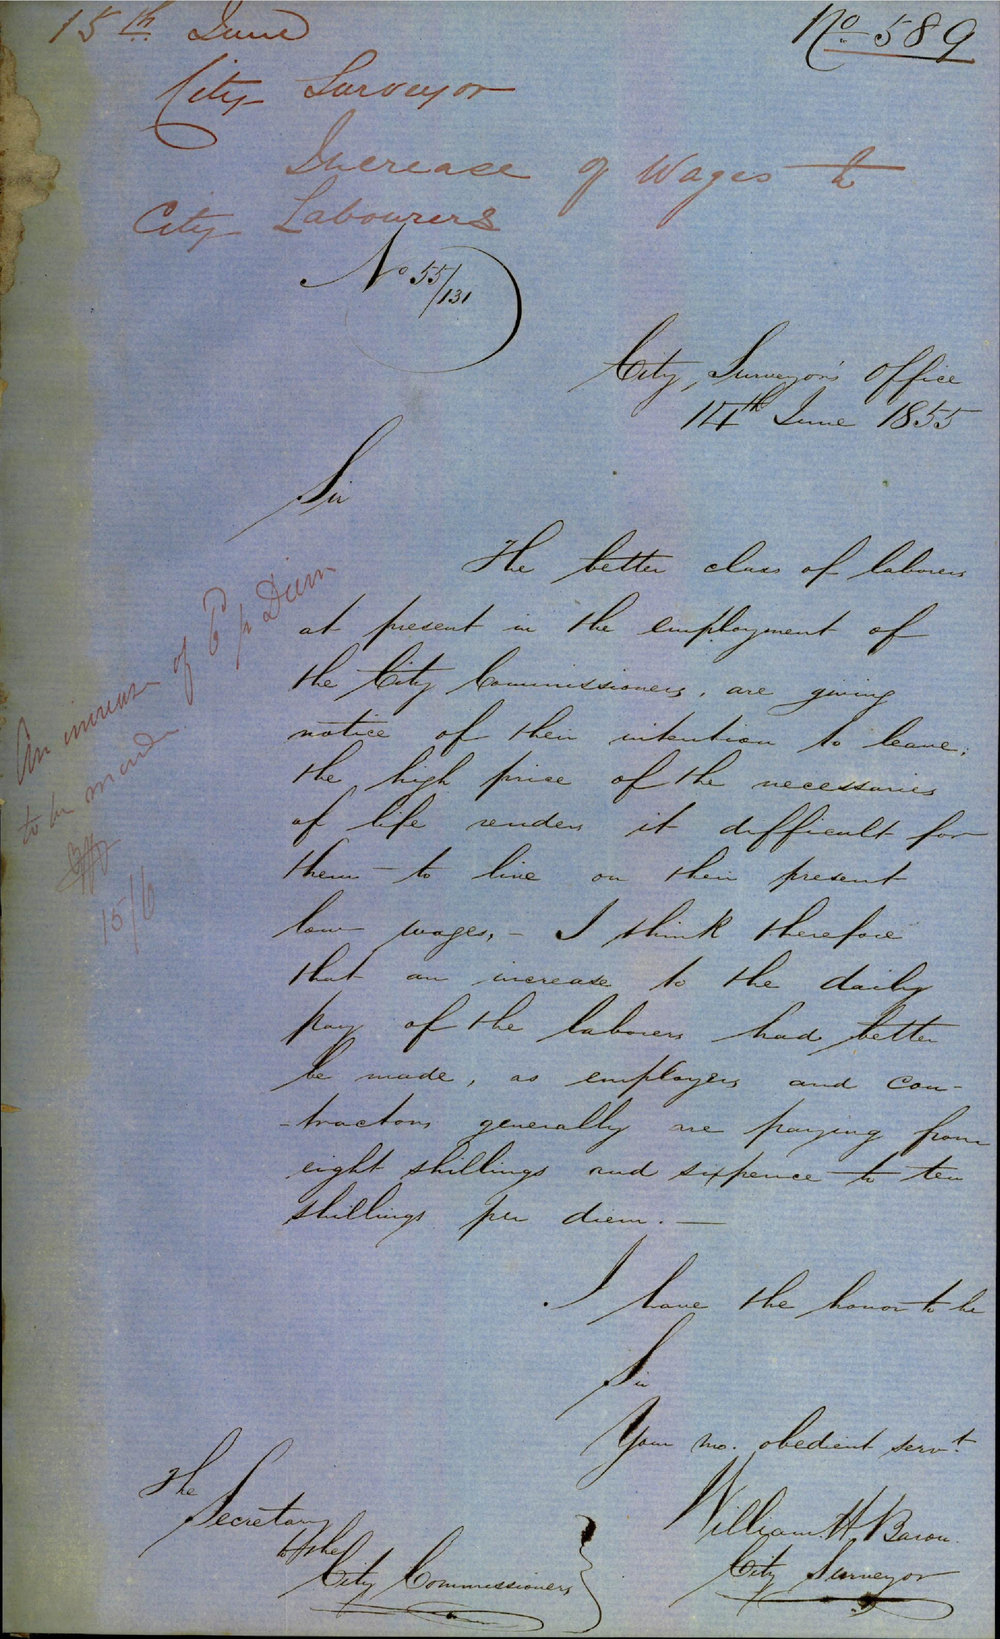 15th June
No 589
City Surveyor
Increase of Wages to
City Labourers
No 55/131
City Surveyor's Office
14th June 1855
Sir
The better class of laborers
at present in the employment of
the City Commissioners, are giving
notice of their intention to leave;
the high price of the necessaries
of life renders it difficult for
them to live on their present
low wages, - I think therefore
that an increase to the daily
pay of the laborers had better
be made, as employers and con-
-tractors generally are paying from
eight shillings and sixpence to ten
shillings per diem. —
An increase of p Diem
to be made
15/6
I have the honor to be
Sir
Your mo. obedient servt.
William H. Bacon.
City Surveyor
The
Secretary
to the
City Commissioners